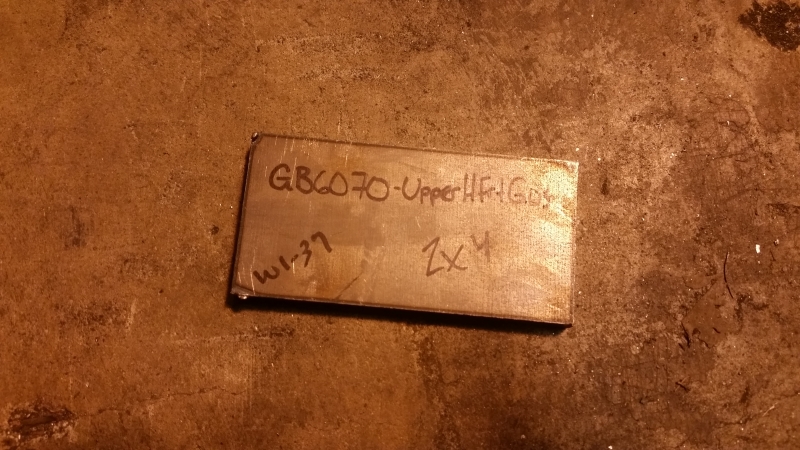 GB6070-Upper
W1-37
2x4